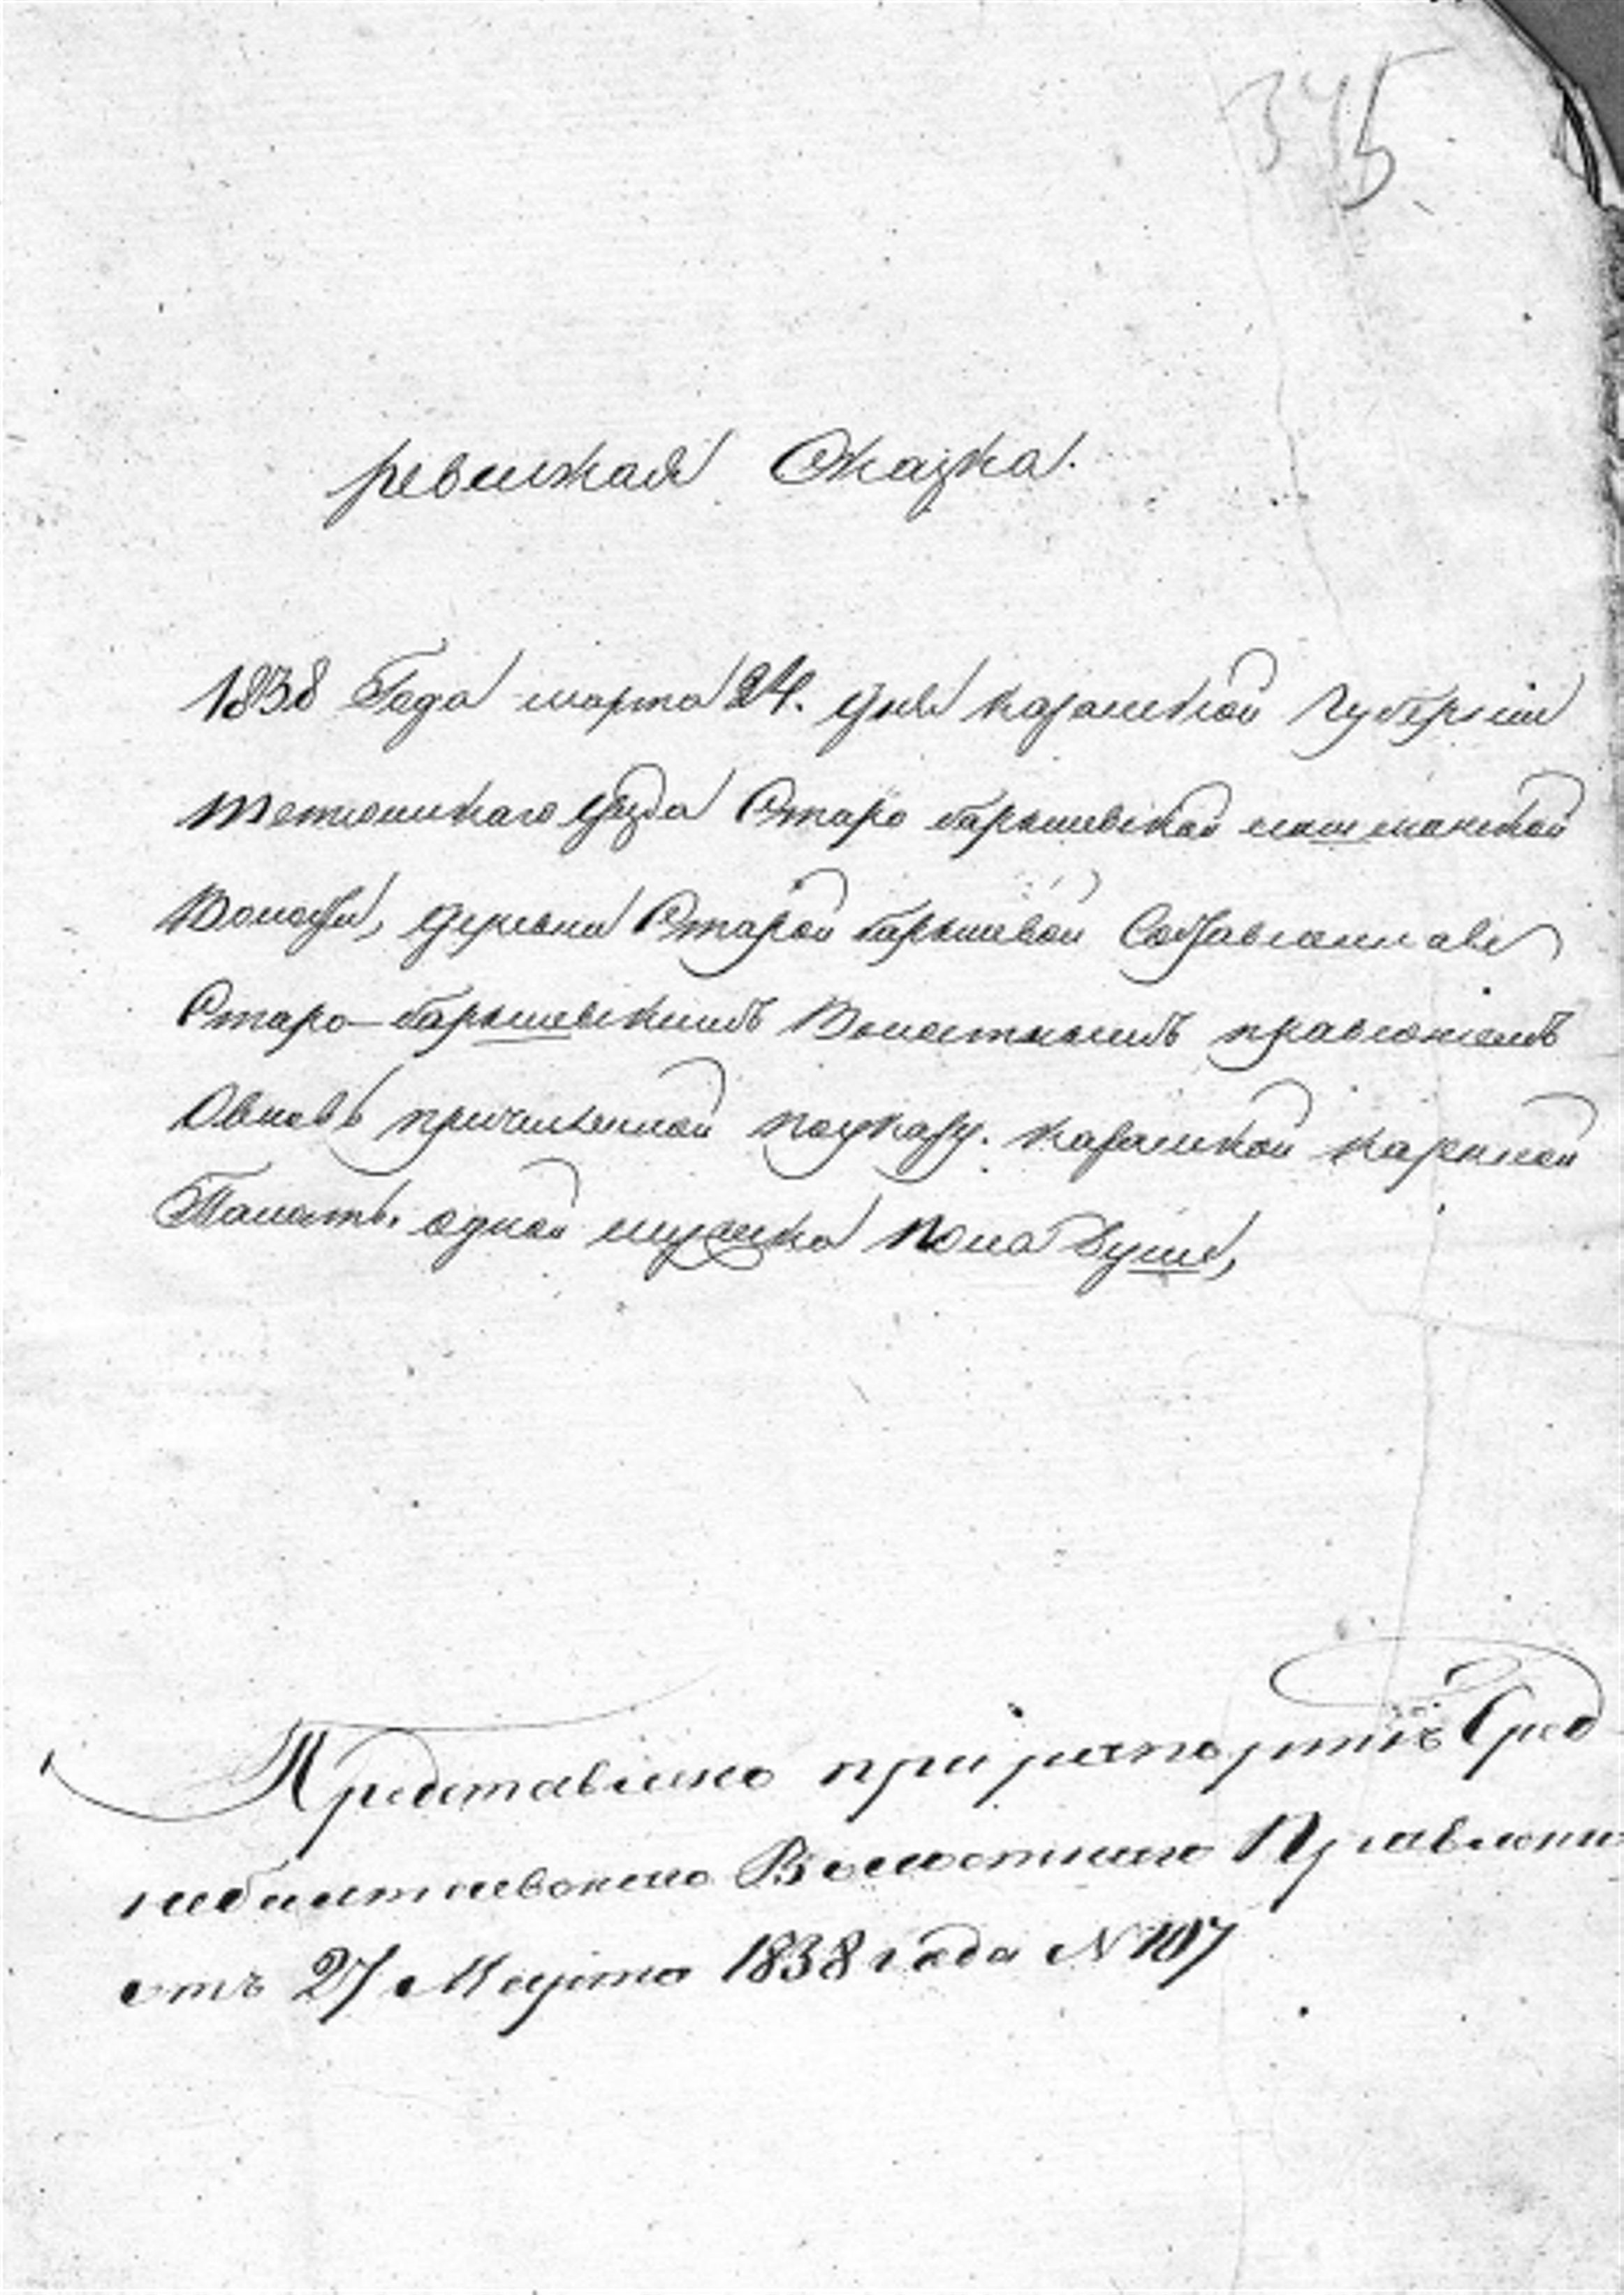 345
ревижкая Сказка.
1838 Года марта 24. дня казанской Губернии
тетюшкаго уезда Старо барышевской лашманской
Волости, деревни Старой барышевой Составленнаве
Старо-барышевскимъ Волостнымъ правлениемъ
Овновь причисленной поуказу. казанской казеной
Палаты, одной мужеска Пола душе,
Представлено при рапортѣ Сред
небалтаевскаго Волостнаго Правлени
отъ 27 Марта 1838 года N 107